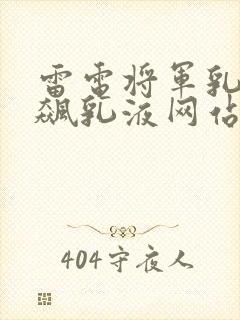 雷电将军乳
飙乳液网佔
404守夜人